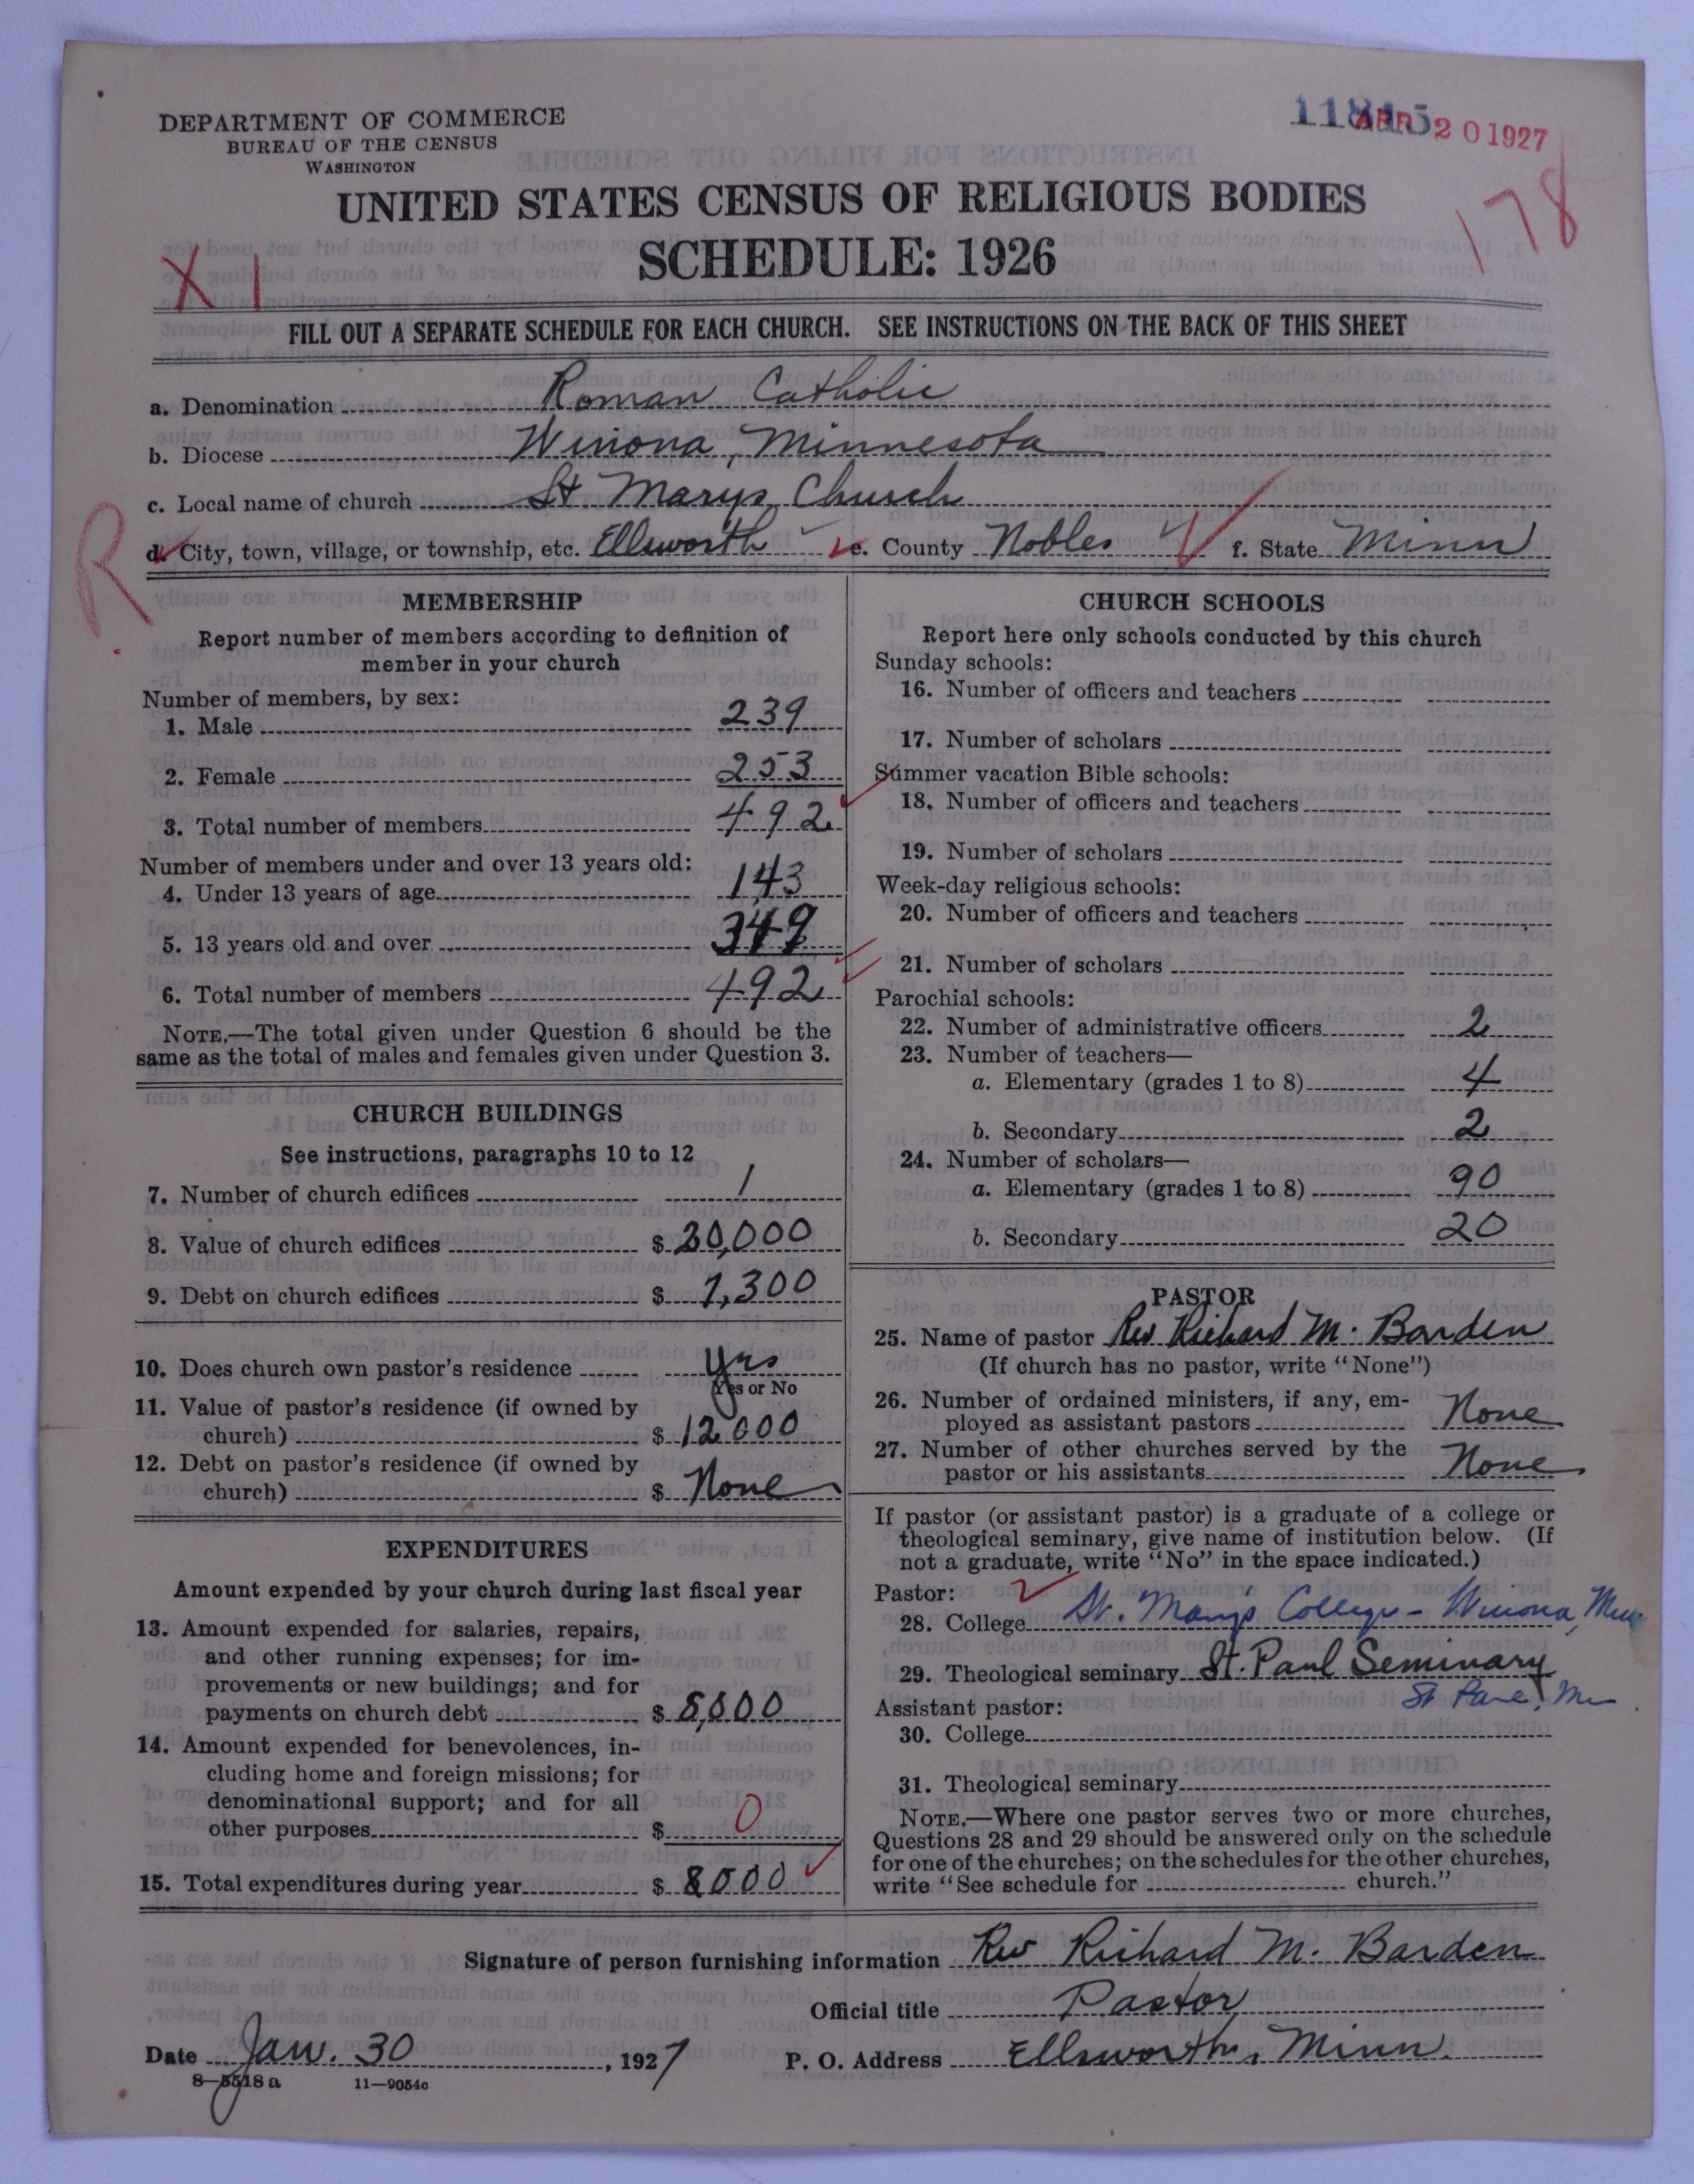 DEPARTMENT OF COMMERCE
BUREAU OF THE CENSUS
WASHINGTON
APR 20 1927
178
UNITED STATES CENSUS OF RELIGIOUS BODIES
SCHEDULE: 1926
X 1
FILL OUT A SEPARATE SCHEDULE FOR EACH CHURCH. SEE INSTRUCTIONS ON THE BACK OF THIS SHEET
a. Denomination Roman Catholic
b. Diocese Winona, Minnesota
c. Local name of church St Marys Church
d. City, town, village, or township, etc. Ellsworth e. County Nobles f. State Minn
R
MEMBERSHIP
Report number of members according to definition of
member in your church
Number of members, by sex:
1. Male 239
2. Female 253
3. Total number of members 492
Number of members under and over 13 years old:
4. Under 13 years of age 143
5. 13 years old and over 349
6. Total number of members 492
NOTE.—The total given under Question 6 should be the
same as the total of males and females given under Question 3.
CHURCH BUILDINGS
See instructions, paragraphs 10 to 12
7. Number of church edifices 1
8. Value of church edifices $
9. Debt on church edifices $ 7,300
10. Does church own pastor's residence Yes
Yes or No
11. Value of pastor's residence (if owned by
church) $ 12000
12. Debt on pastor's residence (if owned by
church) $ None
EXPENDITURES
Amount expended by your church during last fiscal year
13. Amount expended for salaries, repairs,
and other running expenses; for im-
provements or new buildings; and for
payments on church debt $
14. Amount expended for benevolences, in-
cluding home and foreign missions; for
denominational support; and for all
other purposes $ 0
15. Total expenditures during year $ 8000
CHURCH SCHOOLS
Report here only schools conducted by this church
Sunday schools:
16. Number of officers and teachers
17. Number of scholars
Summer vacation Bible schools:
18. Number of officers and teachers
19. Number of scholars
Week-day religious schools:
20. Number of officers and teachers
21. Number of scholars
Parochial schools:
22. Number of administrative officers 2
23. Number of teachers—
a. Elementary (grades 1 to 8) 4
b. Secondary 2
24. Number of scholars—
a. Elementary (grades 1 to 8) 90
b. Secondary 20
PASTOR
25. Name of pastor Rev Richard M. Barden
(If church has no pastor, write "None")
26. Number of ordained ministers, if any, em-
ployed as assistant pastors None
27. Number of other churches served by the
pastor or his assistants None
If pastor (or assistant pastor) is a graduate of a college or
theological seminary, give name of institution below. (If
not a graduate, write "No" in the space indicated.)
Pastor:
28. College St. Mary's College - Winona, Minn
29. Theological seminary St. Paul Seminary
St Paul, Mn
Assistant pastor:
30. College
31. Theological seminary
NOTE.—Where one pastor serves two or more churches,
Questions 28 and 29 should be answered only on the schedule
for one of the churches; on the schedules for the other churches,
write "See schedule for church."
Signature of person furnishing information Rev Richard M. Barden
Official title Pastor
Date Jan. 30, 1927 P. O. Address Ellsworth, Minn.
8—5518a 11—9054c